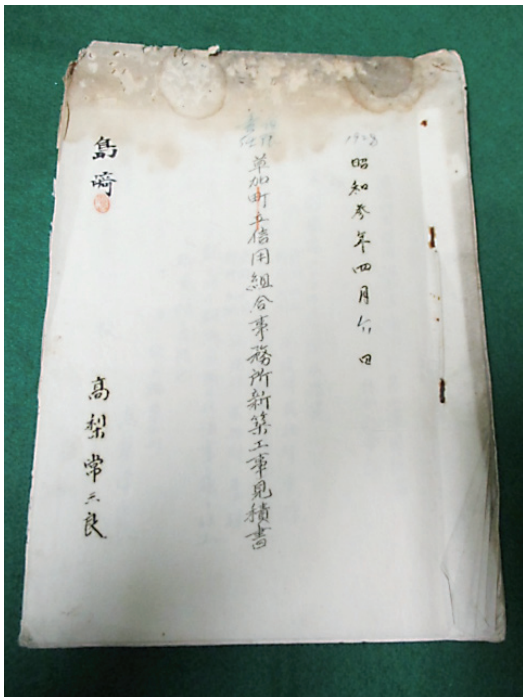 1928
昭和参年四月 日
草加町立信用組合事務所新築工事見積書
島崎
高梨常三良